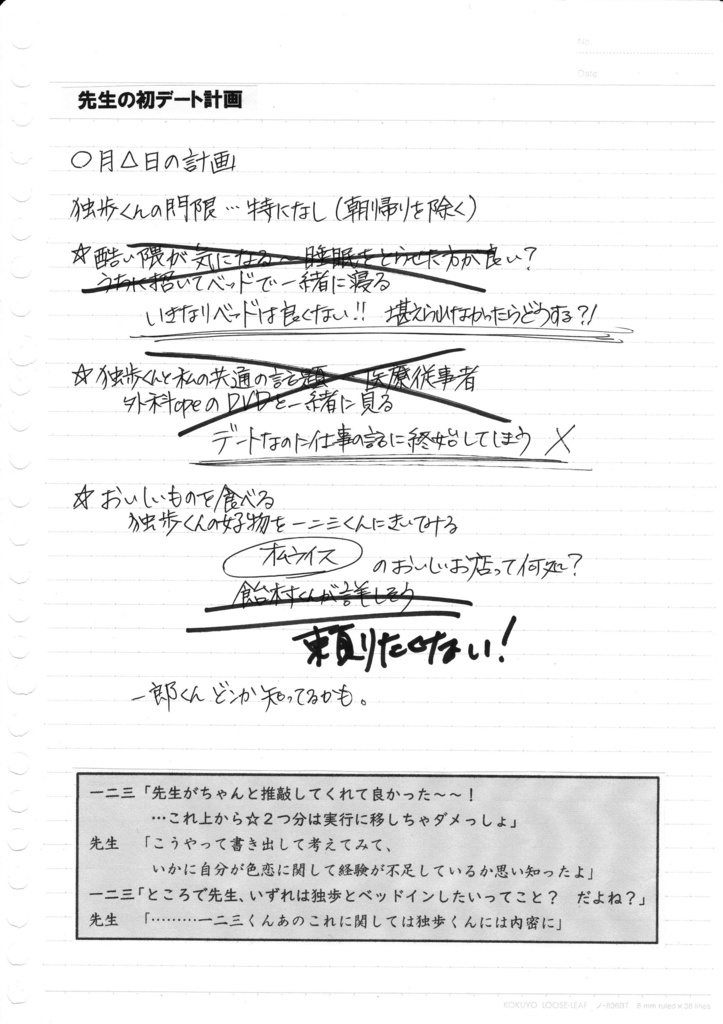 No.
Date
先生の初デート計画
〇月△日の計画
独歩くんの門限…特になし(朝帰りを除く)
☆酷い隈が気になる〜睡眠をとらせた方が良い?
うちに招いてベッドで一緒に寝る
いきなりベッドは良くない!! 堪えられなかったらどうする?!
☆独歩くんと私の共通の話題 医療従事者
外科opeのDVDを一緒に見る
デートなのに仕事の話に終始してしまう ×
☆おいしいものを食べる
独歩くんの好物を一二三くんにきいてみる
オムライス のおいしいお店って何処?
飴村くんが詳しそう
頼りたくない!
一郎くん どこか知ってるかも。
一二三「先生がちゃんと推敲してくれて良かった〜〜!
…これ上から☆2つ分は実行に移しちゃダメっしょ」
先生 「こうやって書き出して考えてみて、
いかに自分が色恋に関して経験が不足しているか思い知ったよ」
一二三「ところで先生、いずれは独歩とベッドインしたいってこと? だよね?」
先生 「………一二三くんあのこれに関しては独歩くんには内密に」
KOKUYO LOOSE-LEAF ノ-836BT 6 mm ruled × 36 lines